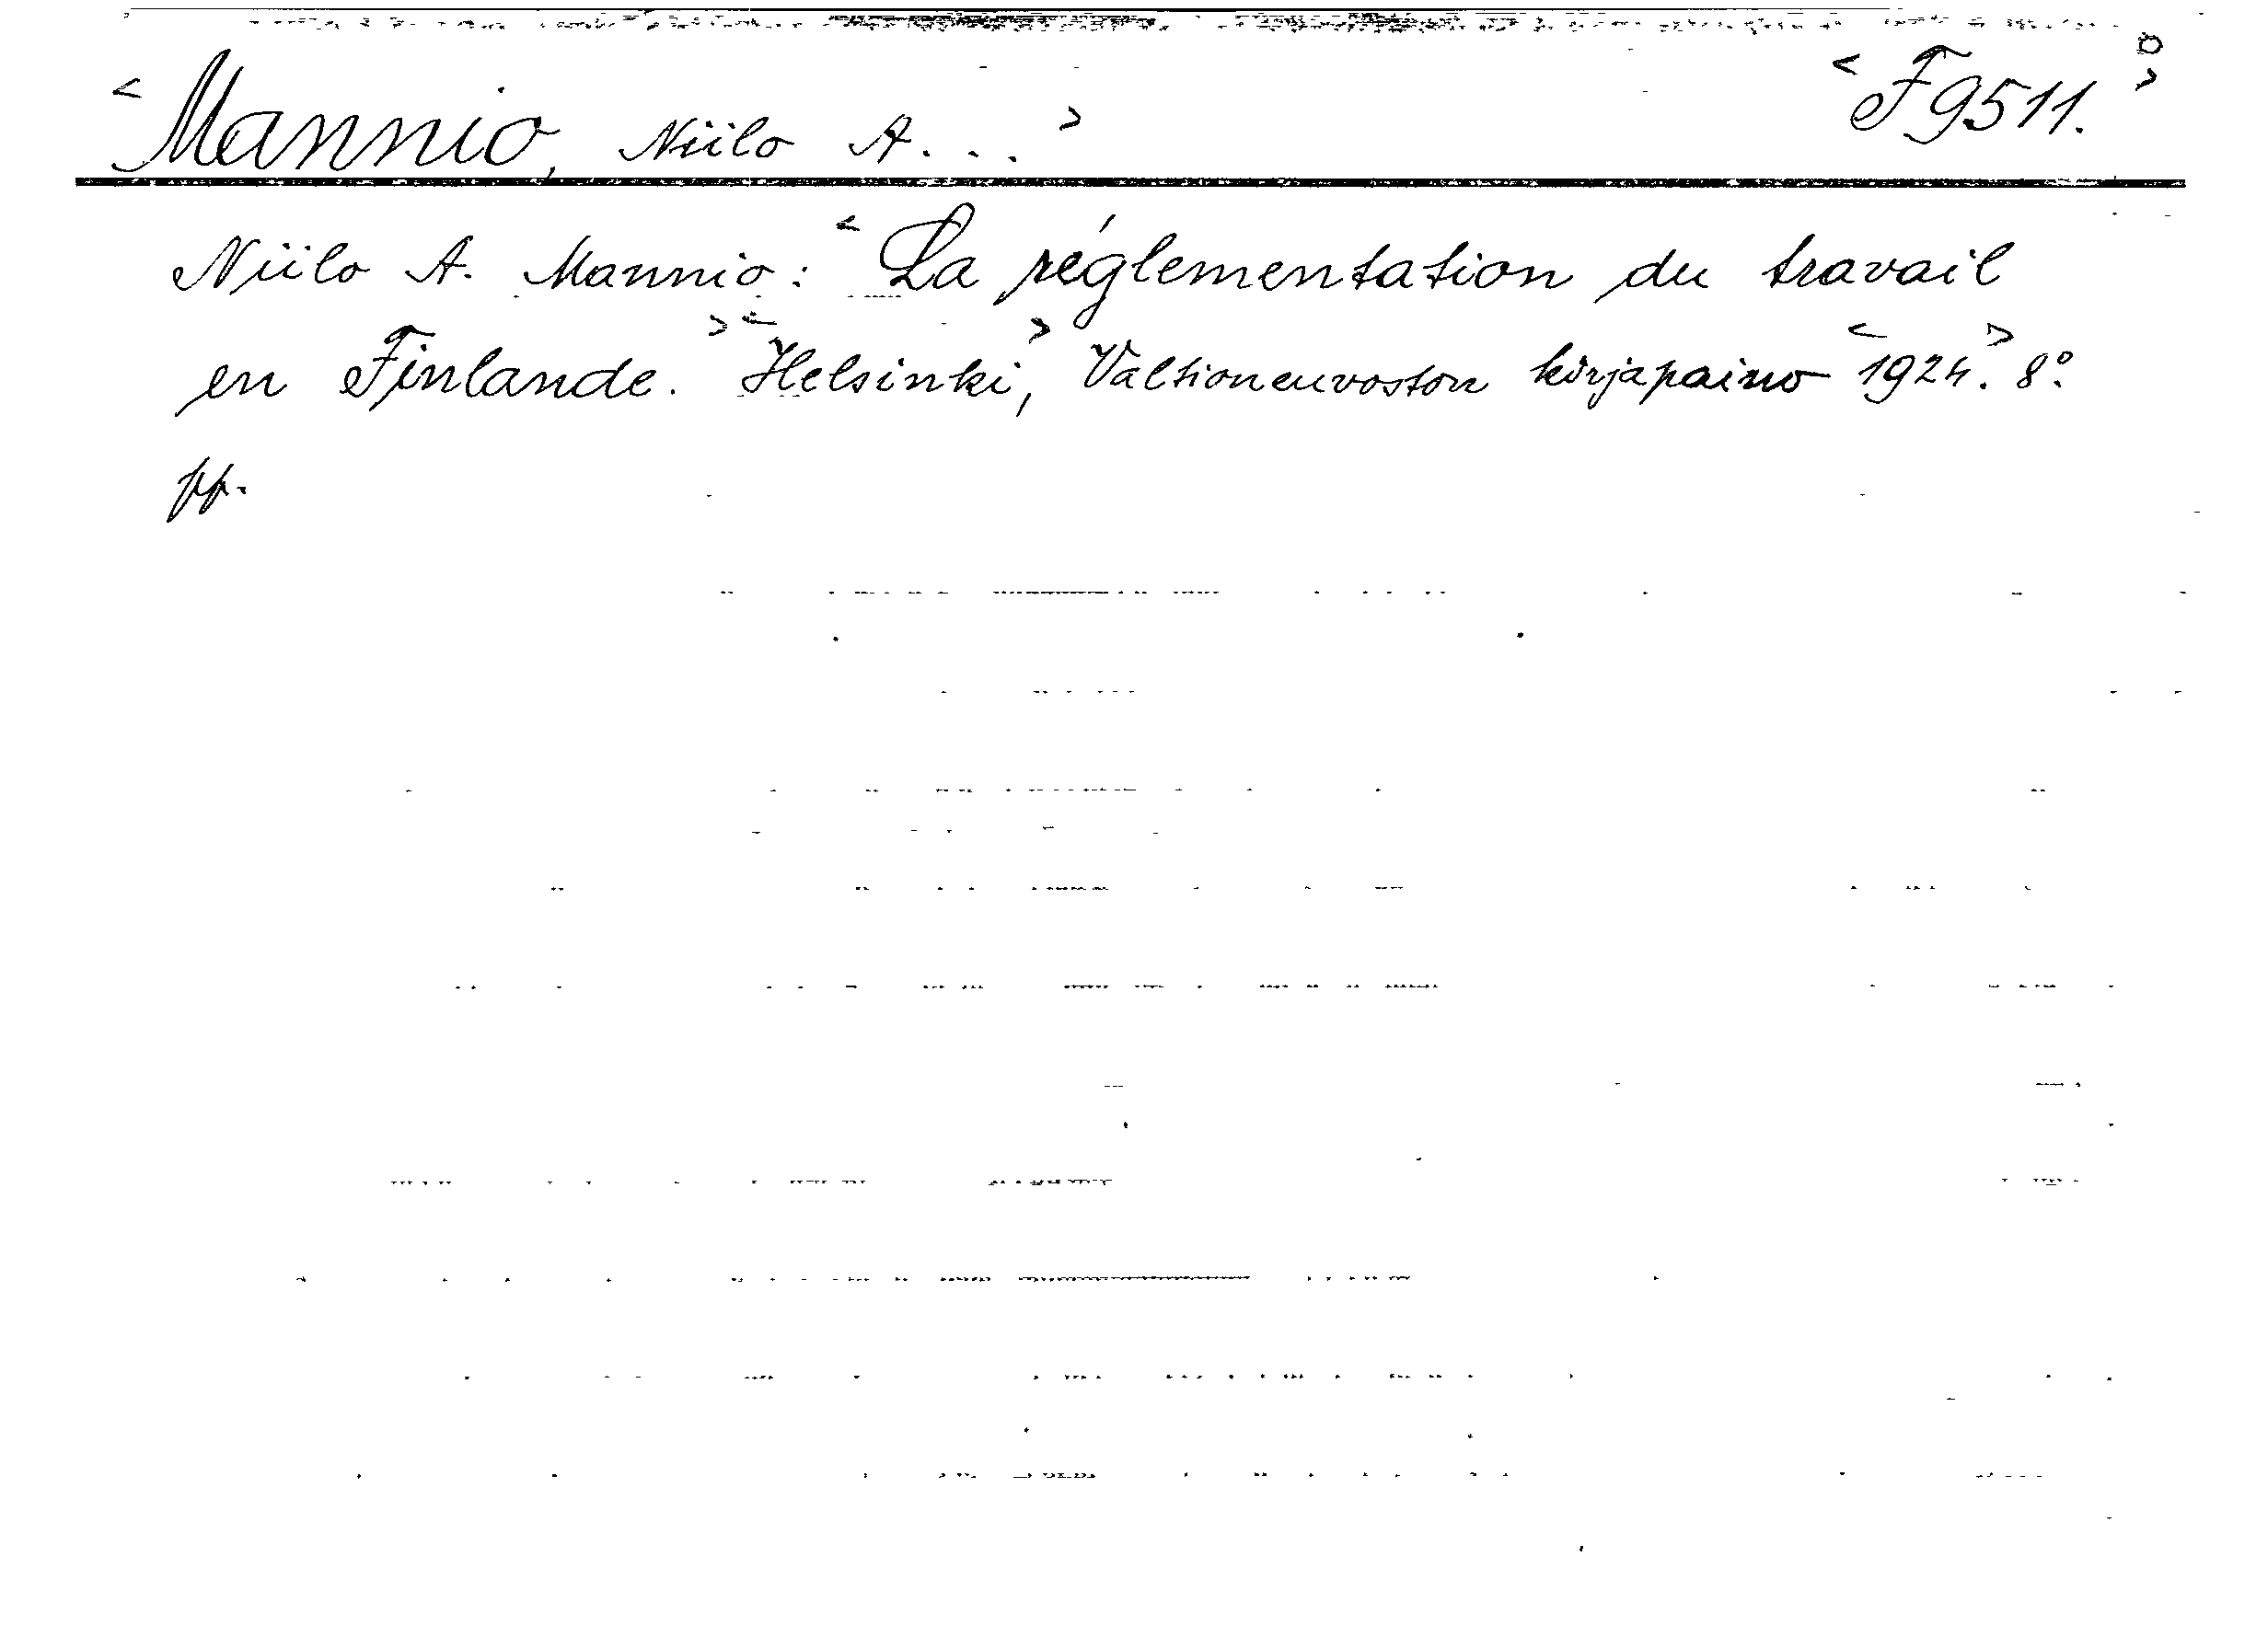 <Mannio, Niilo A. . .> <F9511.>
Niilo A. Mannio: <La réglementation du travail
en Finlande.> <Helsinki,> Valtioneuvoston kirjapaino <1924.> 8°.
pp.